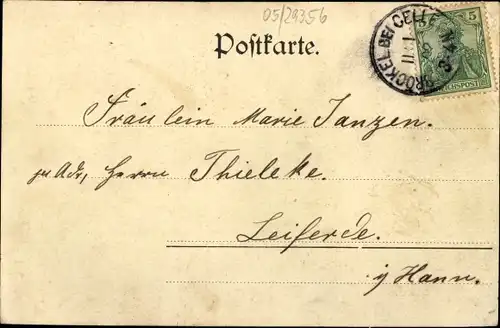 05/29356
Postkarte.
BRÖCKEL BEI CELLE
5
REICHSPOST
Fräulein Marie Janzen.
zu Adr, Herrn Thieleke.
Leiferde.
i/ Hann.